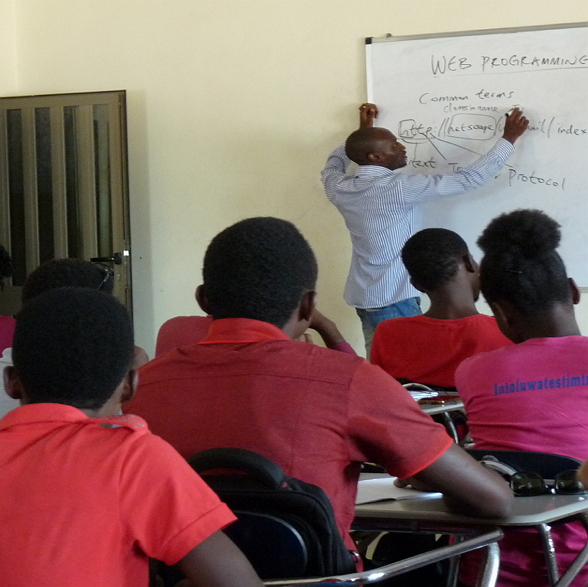 WEB PROGRAMMING
Common terms
domain name
http://netscape/ /index
Protocol
Inioluwatestimi